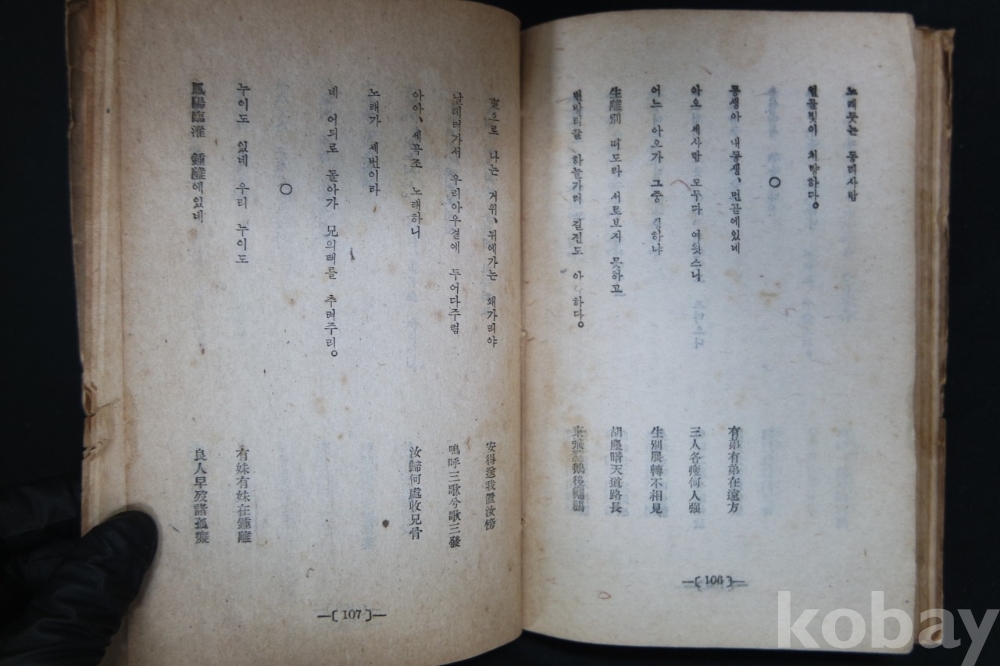 노래듯는 동리사람
얼골빛이 처량하다。
○
동생아 내동생、먼곧에있네
아오 세사람 모두다 여윗스니
어느 아오가 그중 강하냐
生離別 떠도라 서로보지 못하고
하늘가려 길진도 아 하다。
有弟有弟在遠方
三人各瘦何人強
生別展轉不相見
胡塵暗天道路長
—〔 106 〕—
東으로 나는 거위、뒤에가는 왜가리야
날데려가서 우리아우곁에 두어다주렴
아아、세곡조 노래하니
노래가 세번이라
네 어듸로 돌아가 兄의뼈를 추려주리。
○
누이도 있네 우리 누이도
鍾離에있네
安得送我置汝傍
嗚呼三歌兮歌三發
汝歸何處收兄骨
有妹有妹在鍾離
良人早歿諸孤癡
—〔 107 〕—
kobay